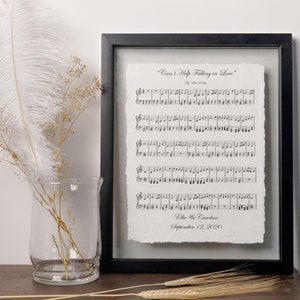 "Can't Help Falling in Love"
Ellie & Caroline
September 12, 2020